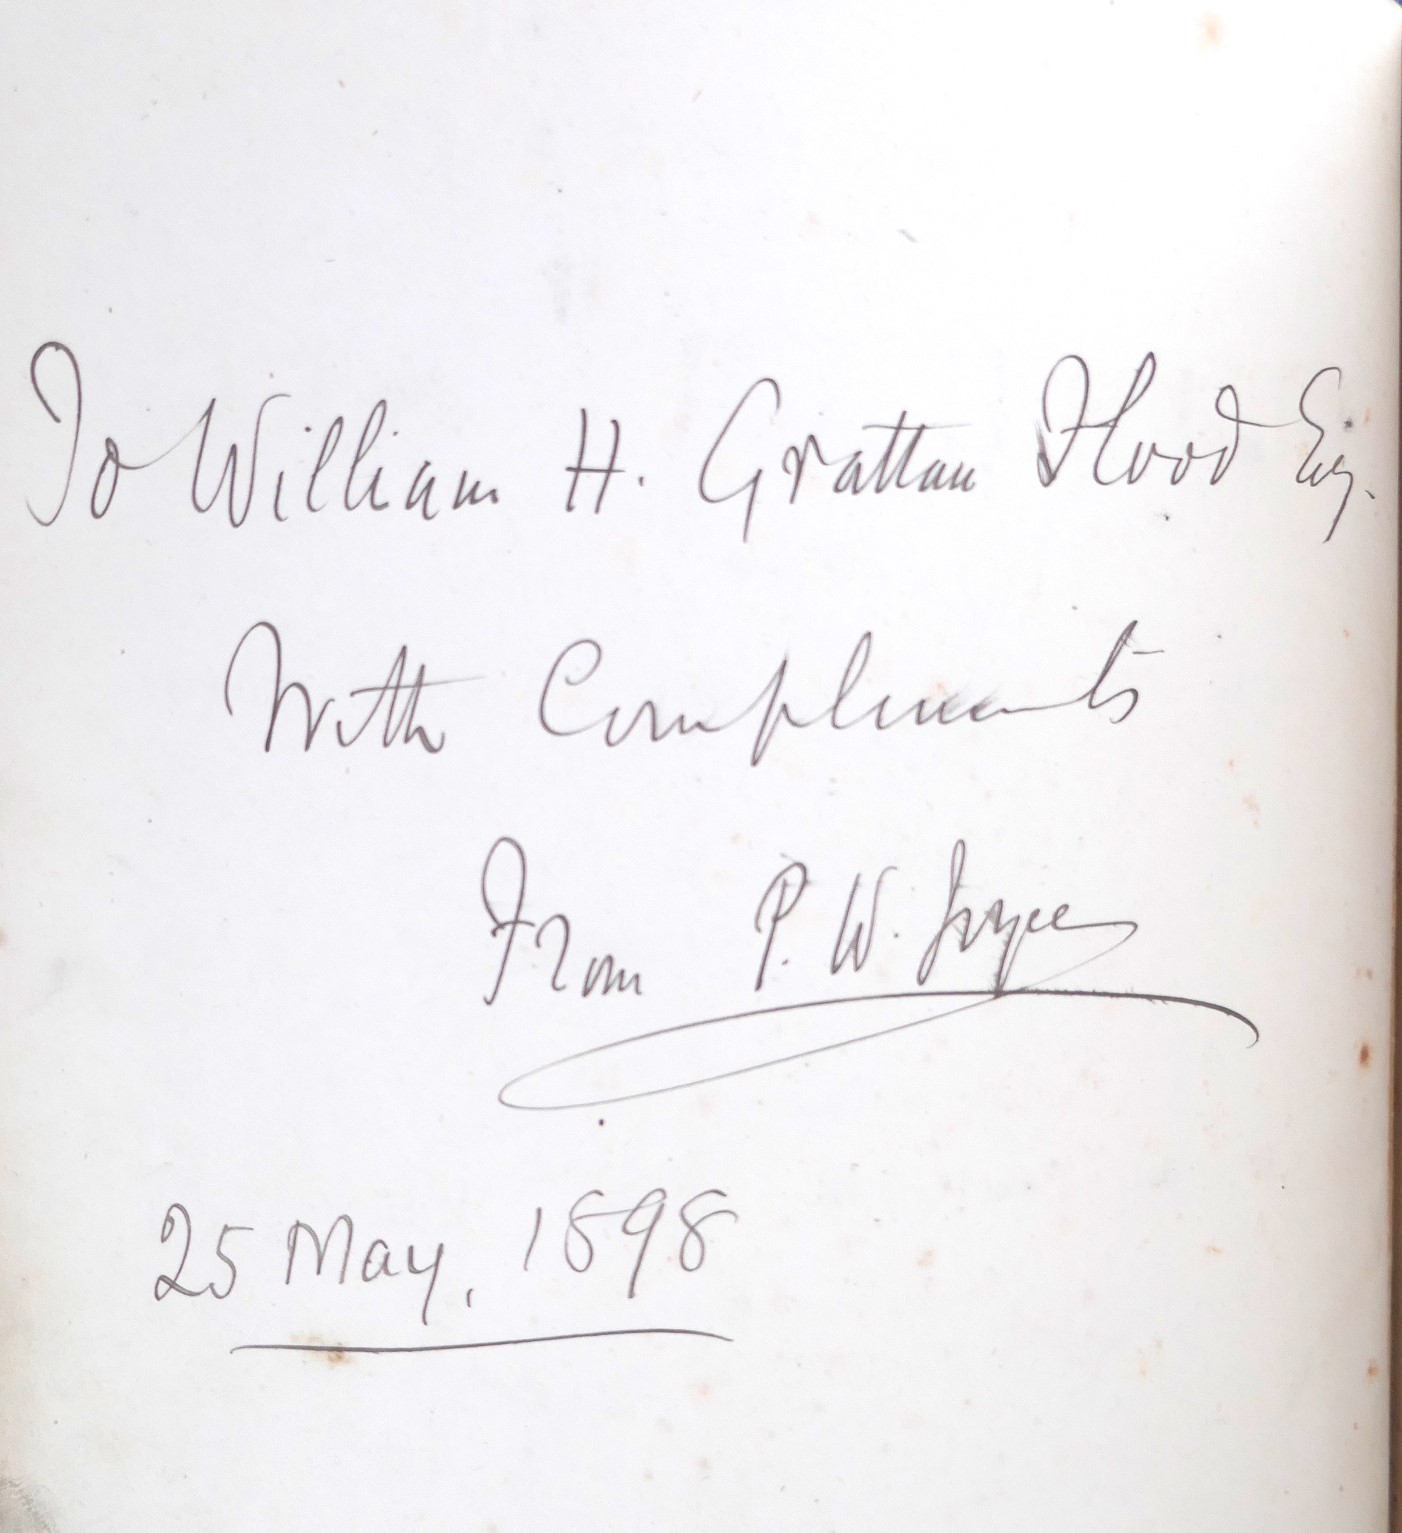 To William H. Grattan Flood Esq.
With Compliments
From P. W. Joyce
25 May, 1898